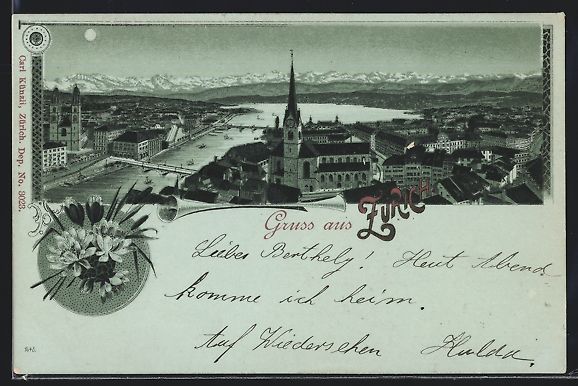 Carl Künzli, Zürich. Dep. No. 3023.
Gruss aus
Zürich
Liebes Berthely! Heut Abend
komme ich heim.
Auf Wiedersehen Hulda.